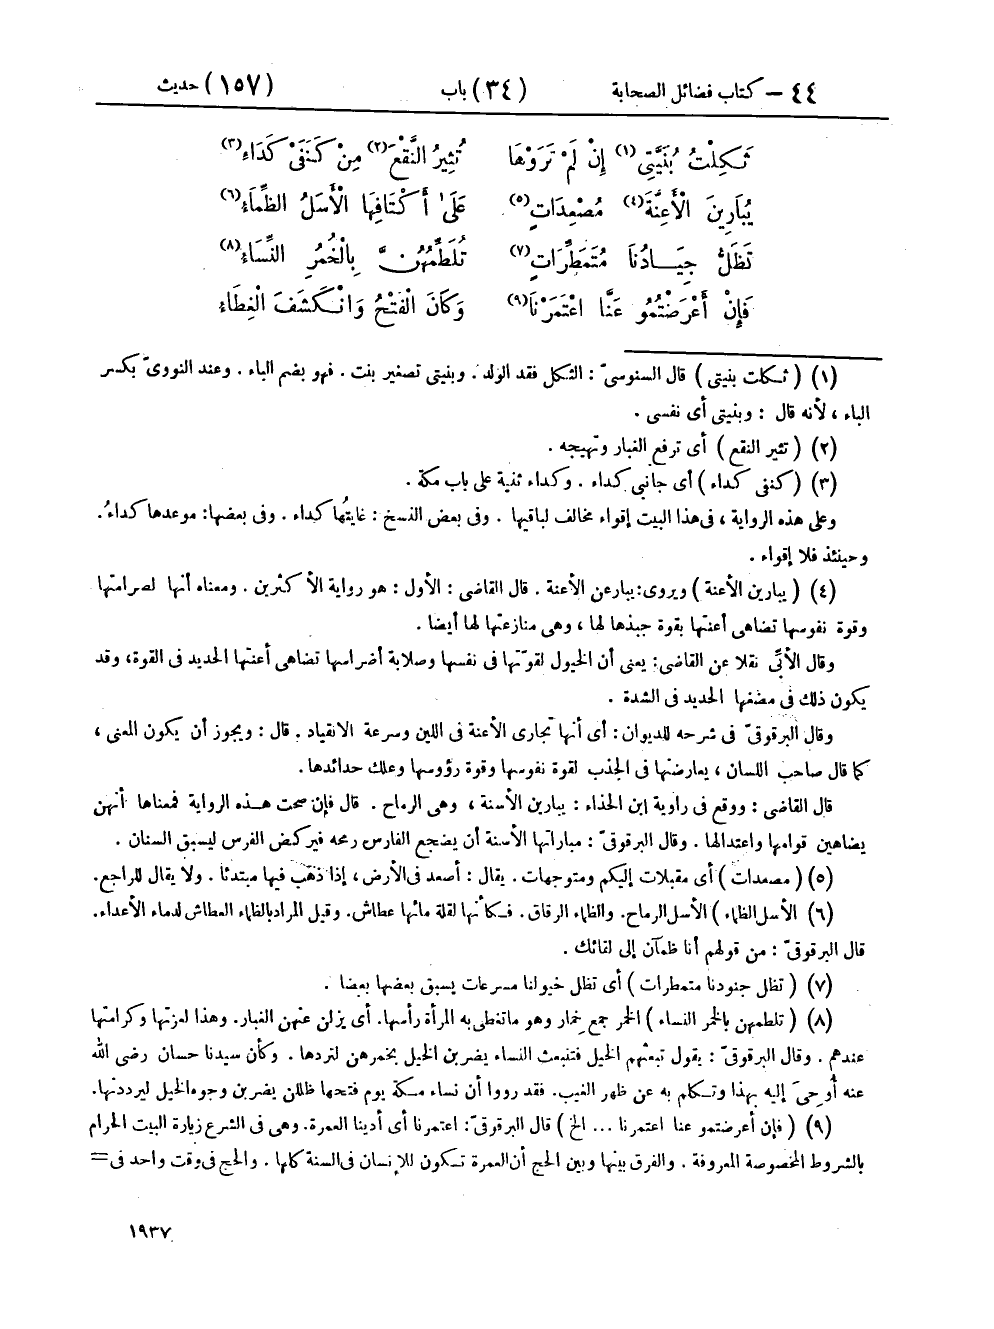 ٤٤ – كتاب فضائل الصحابة (٣٤) باب (١٥٧) حديث
ثَكِلْتُ بُنَيَّتِي(١) إِنْ لَمْ تَرَوْهَا تُثِيرُ النَّقْعَ(٢) مِنْ كَنَفَىْ كَدَاءِ(٣)
يُبَارِينَ الْأَعِنَّةَ(٤) مُصْعِدَاتٍ(٥) عَلَىٰ أَكْتَافِهَا الْأَسَلُ الظِّمَاءُ(٦)
تَظَلُّ جِيَادُنَا مُتَمَطِّرَاتٍ(٧) تُلَطِّمُهُنَّ بِالْخُمُرِ النِّسَاءُ(٨)
فَإِنْ أَعْرَضْتُمُو عَنَّا اعْتَمَرْنَا(٩) وَكَانَ الْفَتْحُ وَانْكَشَفَ الْغِطَاءُ
(١) (ثكلت بنيتى) قال السنوسىّ : الثكل فقد الولد . وبنيتى تصغير بنت . فهو بضم الباء . وعند النووىّ بكسر
الباء ، لأنه قال : وبنيتى أى نفسى .
(٢) (تثير النقع) أى ترفع الغبار وتهيجه .
(٣) (كنفى كداء) أى جانبى كداء . وكداء ثنية على باب مكة .
وعلى هذه الرواية ، فى هذا البيت إقواء مخالف لباقيها . وفى بعض النسخ : غايتُها كداء . وفى بعضها: موعدها كداءُ.
وحينئذ فلا إقواء .
(٤) (يبارين الأعنة) ويروى: يبارعن الأعنة . قال القاضى : الأول : هو رواية الأكثرين . ومعناه أنها لصرامتها
وقوة نفوسها تضاهى أعنتها بقوة جبذها لها ، وهى منازعتها لها أيضا .
وقال الأبّى نقلا عن القاضى: يعنى أن الخيول لقوّتها فى نفسها وصلابة أضراسها تضاهى أعنتها الحديد فى القوة، وقد
يكون ذلك فى مضغها الحديد فى الشدة .
وقال البرقوقىّ فى شرحه للديوان: أى أنها تجارى الأعنة فى اللين وسرعة الانقياد . قال : ويجوز أن يكون المعنى ،
كما قال صاحب اللسان ، يعارضنها فى الجذب لقوة نفوسها وقوة رؤوسها وعلك حدائدها.
قال القاضى : ووقع فى رواية ابن الحذاء : يبارين الأسنة ، وهى الرماح . قال فإن صحت هذه الرواية فمعناها أنهن
يضاهين قوامها واعتدالها . وقال البرقوقىّ : مباراتها الأسنة أن يضجع الفارس رمحه فيركض الفرس ليسبق السنان .
(٥) (مصعدات) أى مقبلات إليكم ومتوجهات . يقال : أصعد فى الأرض، إذا ذهب فيها مبتدئا . ولا يقال للراجع.
(٦) الأسل الظماء) الأسل الرماح. والظماء الرقاق . فكأنها لقلة مائها عطاش. وقيل المراد بالظماء العطاش لدماء الأعداء.
قال البرقوقىّ : من قولهم أنا ظمآن إلى لقائك .
(٧) (تظل جنودنا متمطرات) أى تظل خيولنا مسرعات يسبق بعضها بعضا .
(٨) (تلطمهن بالخمر النساء) الخمر جمع خمار وهو ما تغطى به المرأة رأسها. أى يزلن عنهن الغبار. وهذا لعزتها وكرامتها
عندهم . وقال البرقوقىّ : يقول تبعثهم الخيل فتنبعث النساء يضربن الخيل بخمرهن لتردها . وكأن سيدنا حسان رضى الله
عنه أُوحِىَ إليه بهذا وتكلم به عن ظهر الغيب. فقد رووا أن نساء مكة يوم فتحها ظللن يضربن وجوه الخيل ليرددنها.
(٩) (فإن أعرضتمو عنا اعتمرنا ... الخ) قال البرقوقىّ: اعتمرنا أى أدينا العمرة. وهى فى الشرع زيارة البيت الحرام
بالشروط المخصوصة المعروفة . والفرق بينها وبين الحج أن العمرة تكون للإنسان فى السنة كلها . والحج فى وقت واحد فى =
١٩٣٧